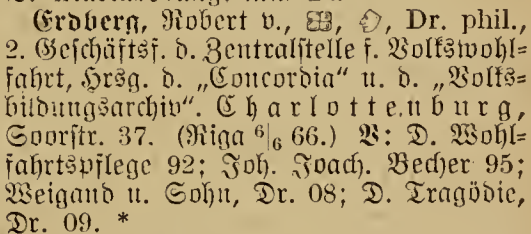 Erdberg, Robert v., Dr. phil.,
2. Geschäftsf. d. Zentralstelle f. Volkswohl-
fahrt, Hrsg. d. „Concordia“ u. d. „Volks-
bildungsarchiv“. Charlottenburg,
Soorstr. 37. (Riga 6|6 66.) V: D. Wohl-
fahrtspflege 92; Joh. Joach. Becher 95;
Weigand u. Sohn, Dr. 08; D. Tragödie,
Dr. 09. *